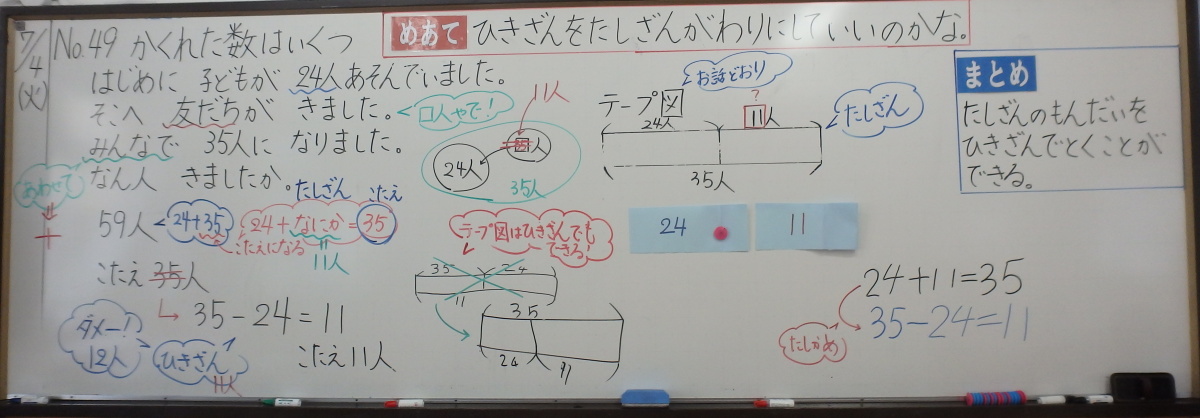 7/4
(火)
No.49 かくれた数はいくつ
めあて ひきざんをたしざんがわりにしていいのかな。
はじめに 子どもが 24人あそんでいました。
そこへ 友だちが きました。
口人やで!
みんなで 35人に なりました。
あわせて
なん人 きましたか。
たしざん こたえ
59人
24+35
24+なにか=35
こたえになる
11人
こたえ 35人
35-24=11
ダメー!
12人
ひきざん
11人
こたえ11人
11人
24人
35人
お話どおり
テープ図
?
24人
11人
たしざん
35人
テープ図はひきざんでも
できる!
35 24
11
35
24 11
24
11
24+11=35
35-24=11
たしかめ
まとめ
たしざんのもんだいを
ひきざんでとくことが
できる。